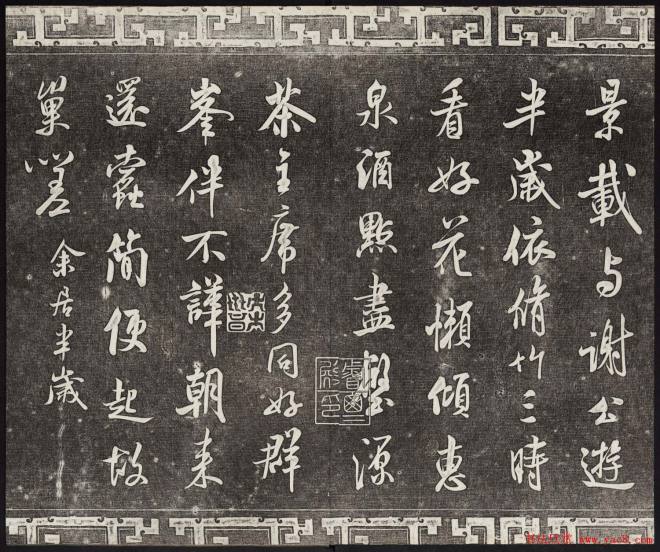 景載與謝公遊
半歲依脩竹三時
看好花懶傾惠
泉酒點盡壑源
茶主席多同好群
峯伴不譁朝来
還蠹簡便起故
巢嗟 余居半歲
www.yac8.com